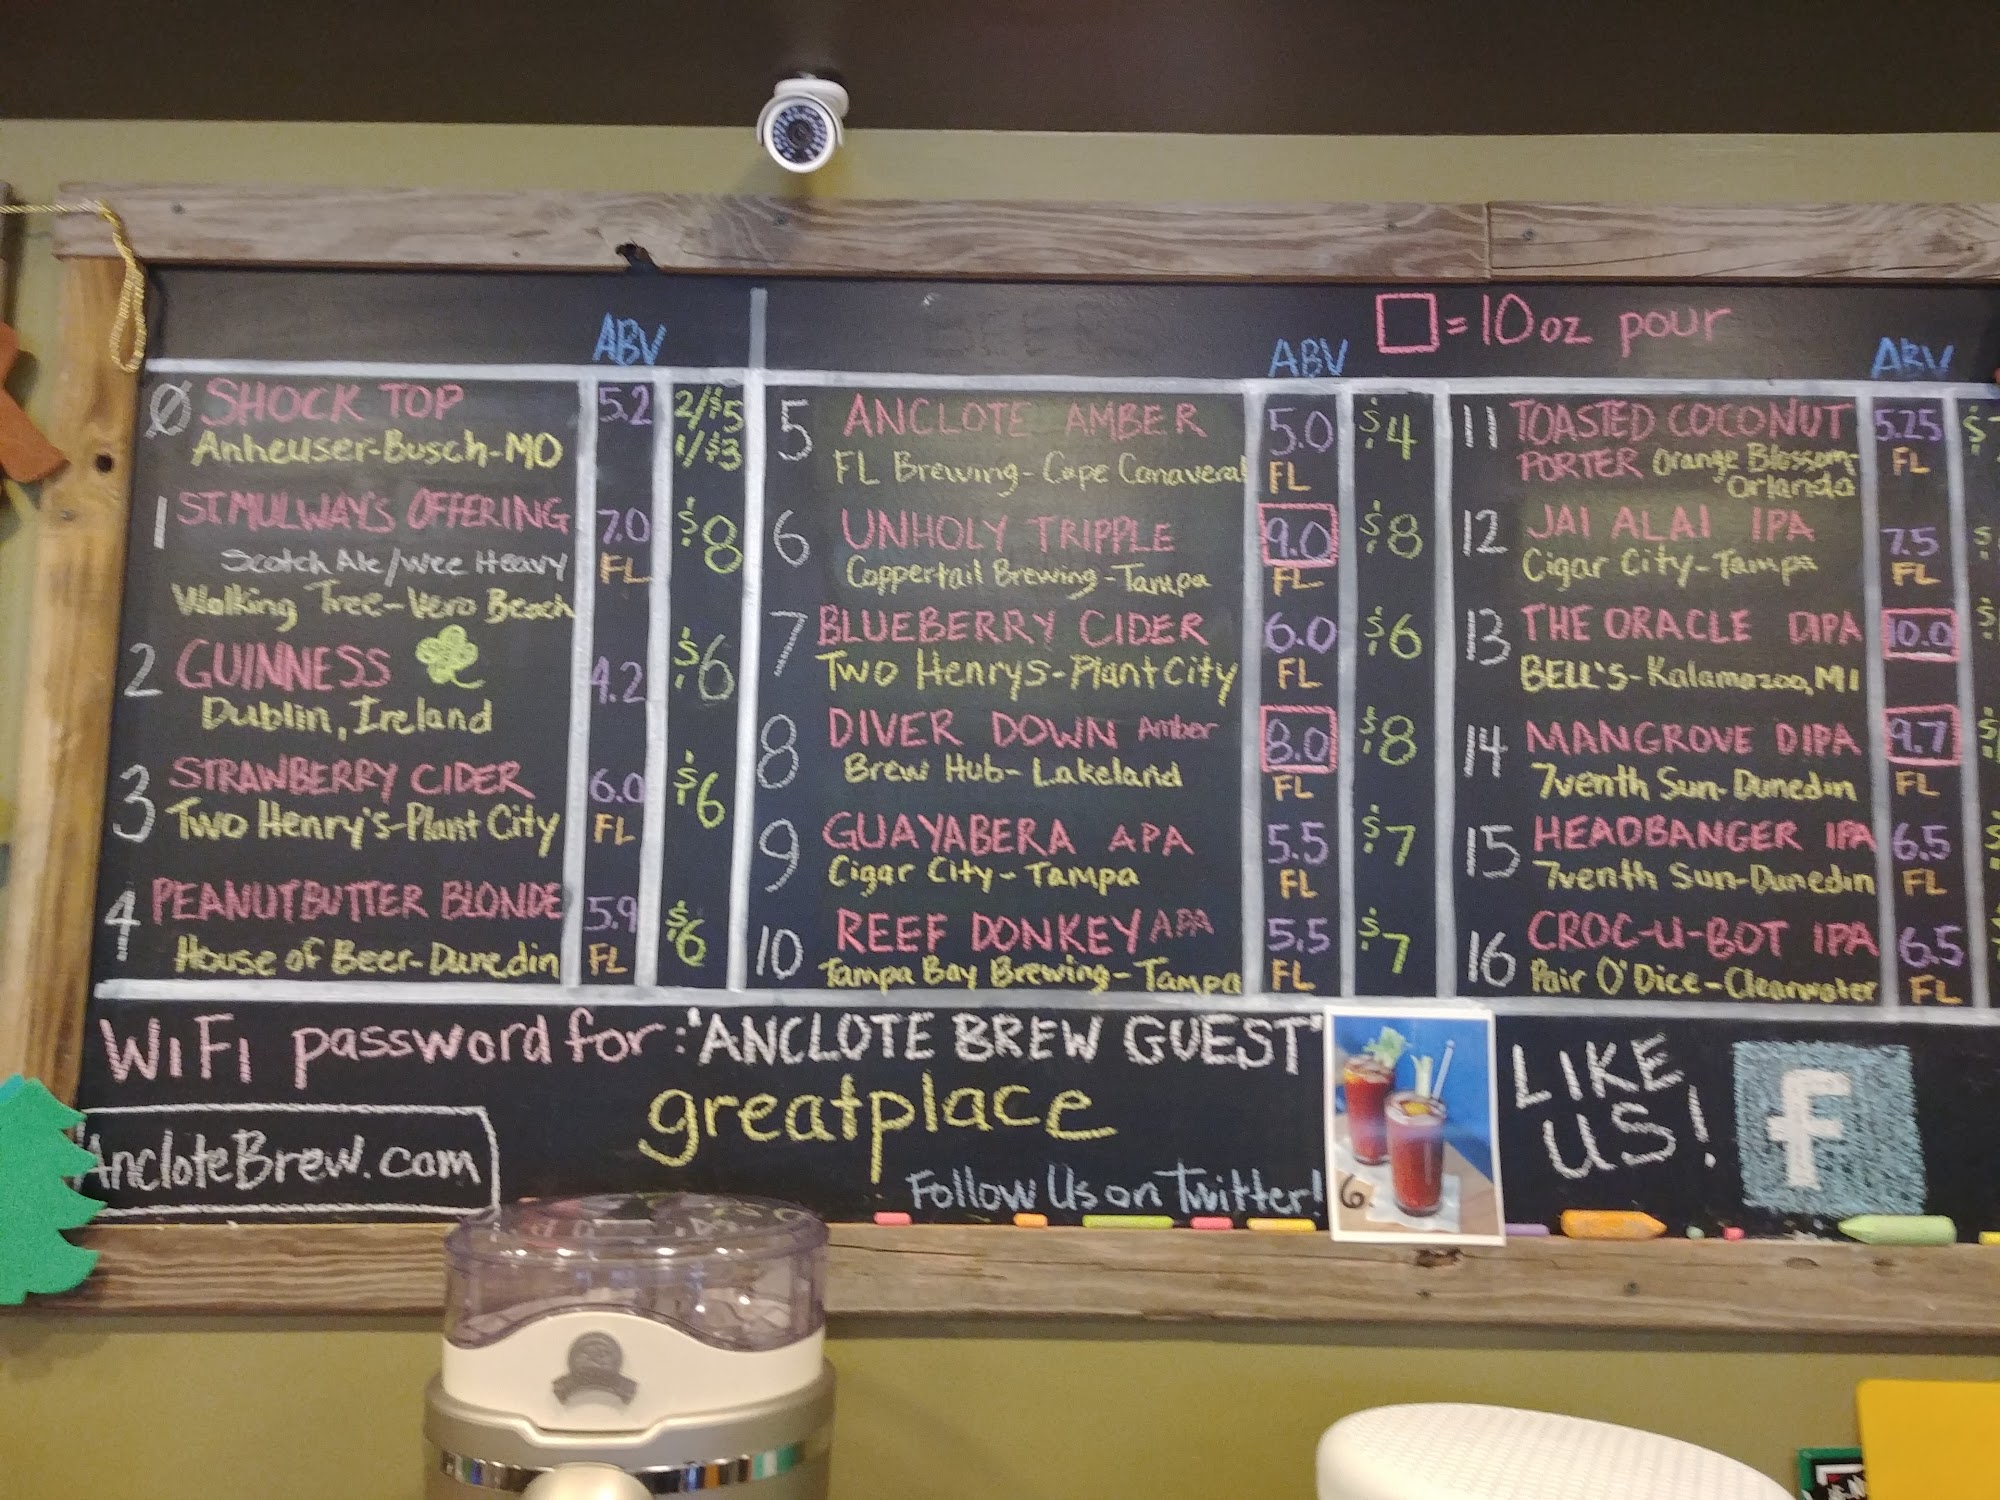 = 10 oz pour
ABV
ABV
ABV
Ø SHOCK TOP 5.2 2/$5
Anheuser-Busch-MO 1/$3
1 ST. MULWAY'S OFFERING 7.0 $8
Scotch Ale/Wee Heavy FL
Walking Tree-Vero Beach
2 GUINNESS 4.2 $6
Dublin, Ireland
3 STRAWBERRY CIDER 6.0 $6
Two Henry's-Plant City FL
4 PEANUTBUTTER BLONDE 5.9 $6
House of Beer-Dunedin FL
5 ANCLOTE AMBER 5.0 $4
FL Brewing-Cape Canaveral FL
6 UNHOLY TRIPPLE 9.0 $8
Coppertail Brewing-Tampa FL
7 BLUEBERRY CIDER 6.0 $6
Two Henrys-Plant City FL
8 DIVER DOWN Amber 8.0 $8
Brew Hub-Lakeland FL
9 GUAYABERA APA 5.5 $7
Cigar City-Tampa FL
10 REEF DONKEY APA 5.5 $7
Tampa Bay Brewing-Tampa FL
11 TOASTED COCONUT 5.25 $
PORTER Orange Blossom- FL
Orlando
12 JAI ALAI IPA 7.5 $
Cigar City-Tampa FL
13 THE ORACLE DIPA 10.0
BELL'S-Kalamazoo, MI
14 MANGROVE DIPA 9.7 $
7venth Sun-Dunedin FL
15 HEADBANGER IPA 6.5
7venth Sun-Dunedin FL
16 CROC-U-BOT IPA 6.5
Pair O'Dice-Clearwater FL
WiFi password for: "ANCLOTE BREW GUEST"
greatplace
AncloteBrew.com
Follow Us on Twitter!
6.
LIKE
US!
f